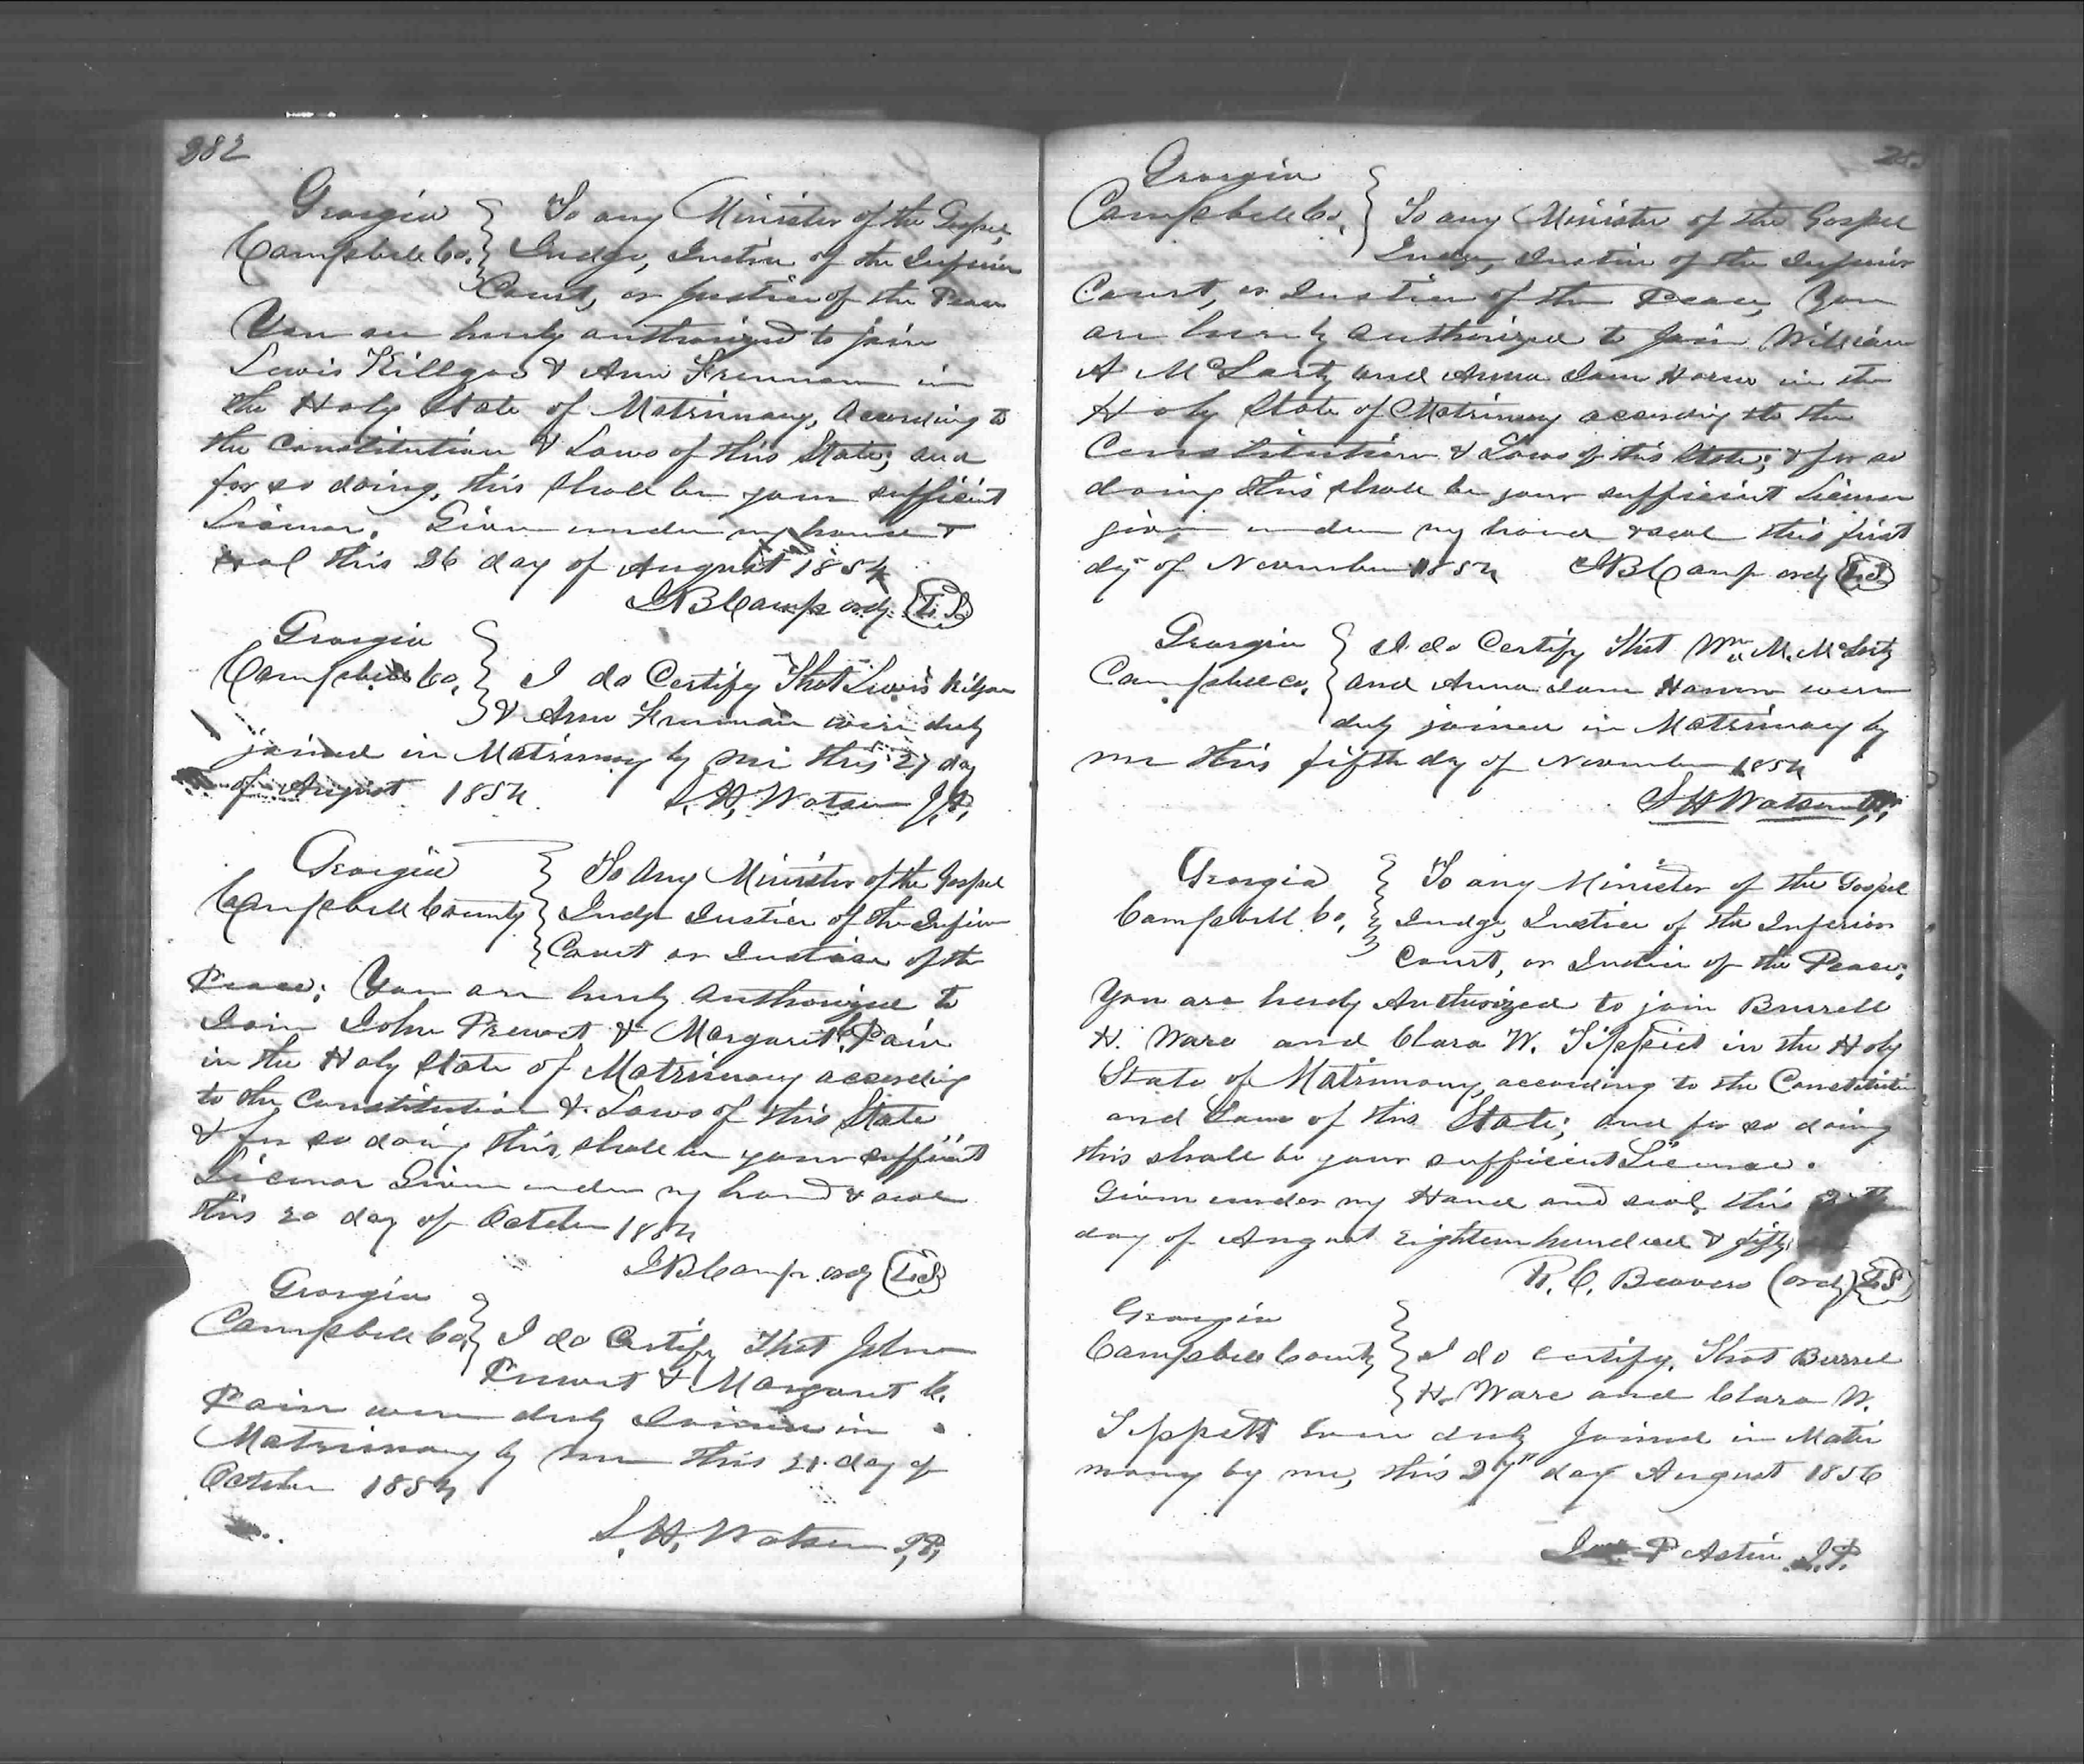 282
Georgia
Campbell Co. To any Minister of the Gospel,
Judge, Justice of the Inferior
Court, or Justice of the Peace
You are hereby authorized to join
Lewis Killgo & Ann Freeman in
the Holy State of Matrimony, according to
the Constitution & Laws of this State; and
for so doing, this shall be your sufficient
License. Given under my hand &
seal this 26 day of August 1854
J B Camp ordy. L.S.
Georgia
Campbell Co. I do Certify That Lewis Kilgo
& Ann Freeman were duly
joined in Matrimony by me this 27 day
of August 1854 S. H. Watson J.P.
Georgia To Any Minister of the Gospel
Campbell County Judge Justice of the Inferior
Court or Justice of the
Peace; You are hereby authorized to
Join John Prewet & Margarit C Pain
in the Holy State of Matrimony according
to the Constitution & Laws of this State
& for so doing this, shall be your sufficient
License Given under my hand & seal
this 20 day of October 1854
J B Camp ordy L.S
Georgia
Campbell Co. I do Certify That John
Prewet & Margaret C.
Pain were duly Joined in
Matrimony by me this 21 day of
October 1854
S. H. Watson J.P.
Georgia
Campbell Co. To any Minister of the Gospel
Judge, Justice of the Inferior
Court, or Justice of the Peace, You
are hereby authorized to Join William
A McLarty and Anna Jane in the
Holy State of Matrimony according to the
Constitution & Laws of this State; & for so
doing this shall be your sufficient License
given under my hand & seal this first
dy of November 1854 J B Camp ordy L.S
Georgia I do Certify That Wm M. McLarty
Campbell co. and Anna Jane were
duly joined in Matrimony by
me this fifth dy of November 1854
S H Watson
Georgia To any Minister of the Gospel
Campbell Co. Judge, Justice of the Inferior
Court, or Justice of the Peace;
You are hereby Authorized to join Burrell
H. Ware and Clara W. in the Holy
State of Matrimony, according to the Constitution
and Laws of this State; and for so doing
this shall be your sufficient License.
Given under my Hand and seal, this
day of August Eighteen hundred & fifty
R. C. Beavers (ordy) L S
Georgia
Campbell County I do certify, That Burrel
H. Ware and Clara W.
Tippett were duly Joined in Matri
mony by me, this 27" day August 1856
P Astin J.P.